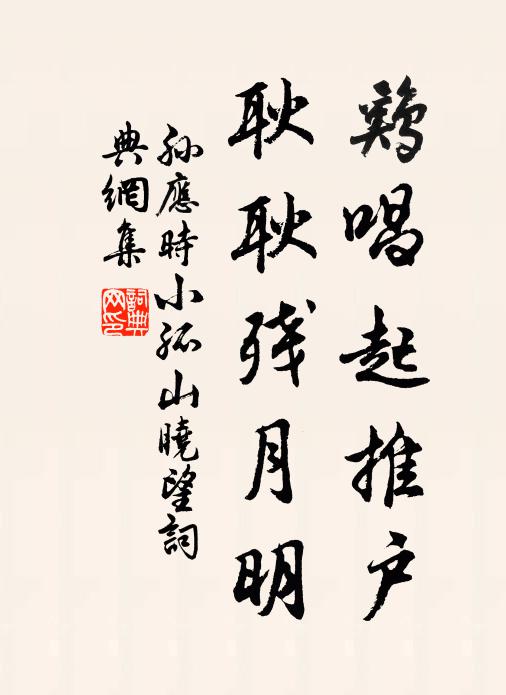 鷄唱起推户
耿耿残月明
孫應時小孤山曉望詞
典網集
詞典
网印